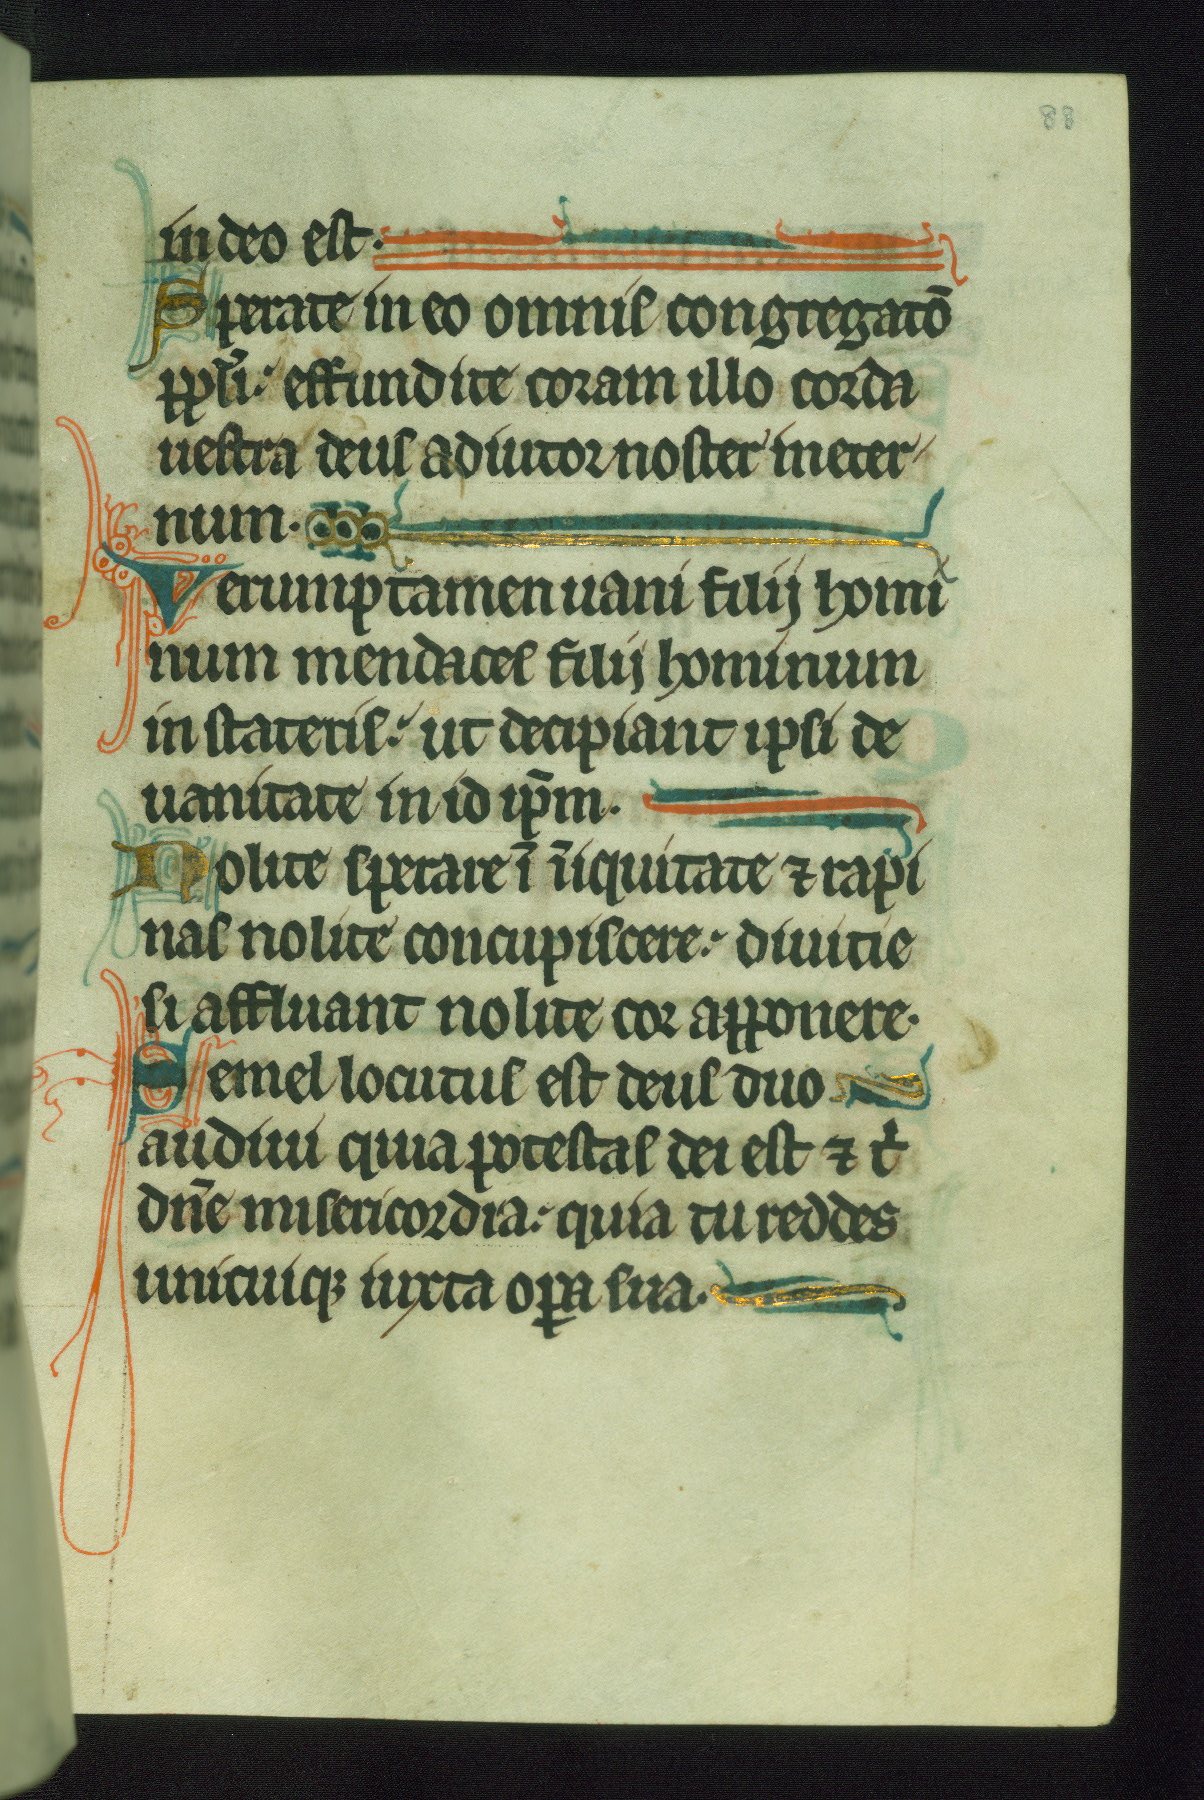 in deo est.
Sperate in eo omnis congregatō
ppl̄i: effundite coram illo corda
uestra deus adiutor noster in eter
num.
Verumptamen uani filij homi
num mendaces filij hominum
in stateris: ut decipiant ipsi de
uanitate in id ip̄m.
Nolite sperare ī īiquitate ⁊ rapi
nas nolite concupiscere: diuitie
si affluant nolite cor apponere.
Semel locutus est deus duo
audiui quia potestas dei est ⁊ t̄
dn̄e misericordia: quia tu reddes
unicuiqꝫ iuxta oꝑa sua.